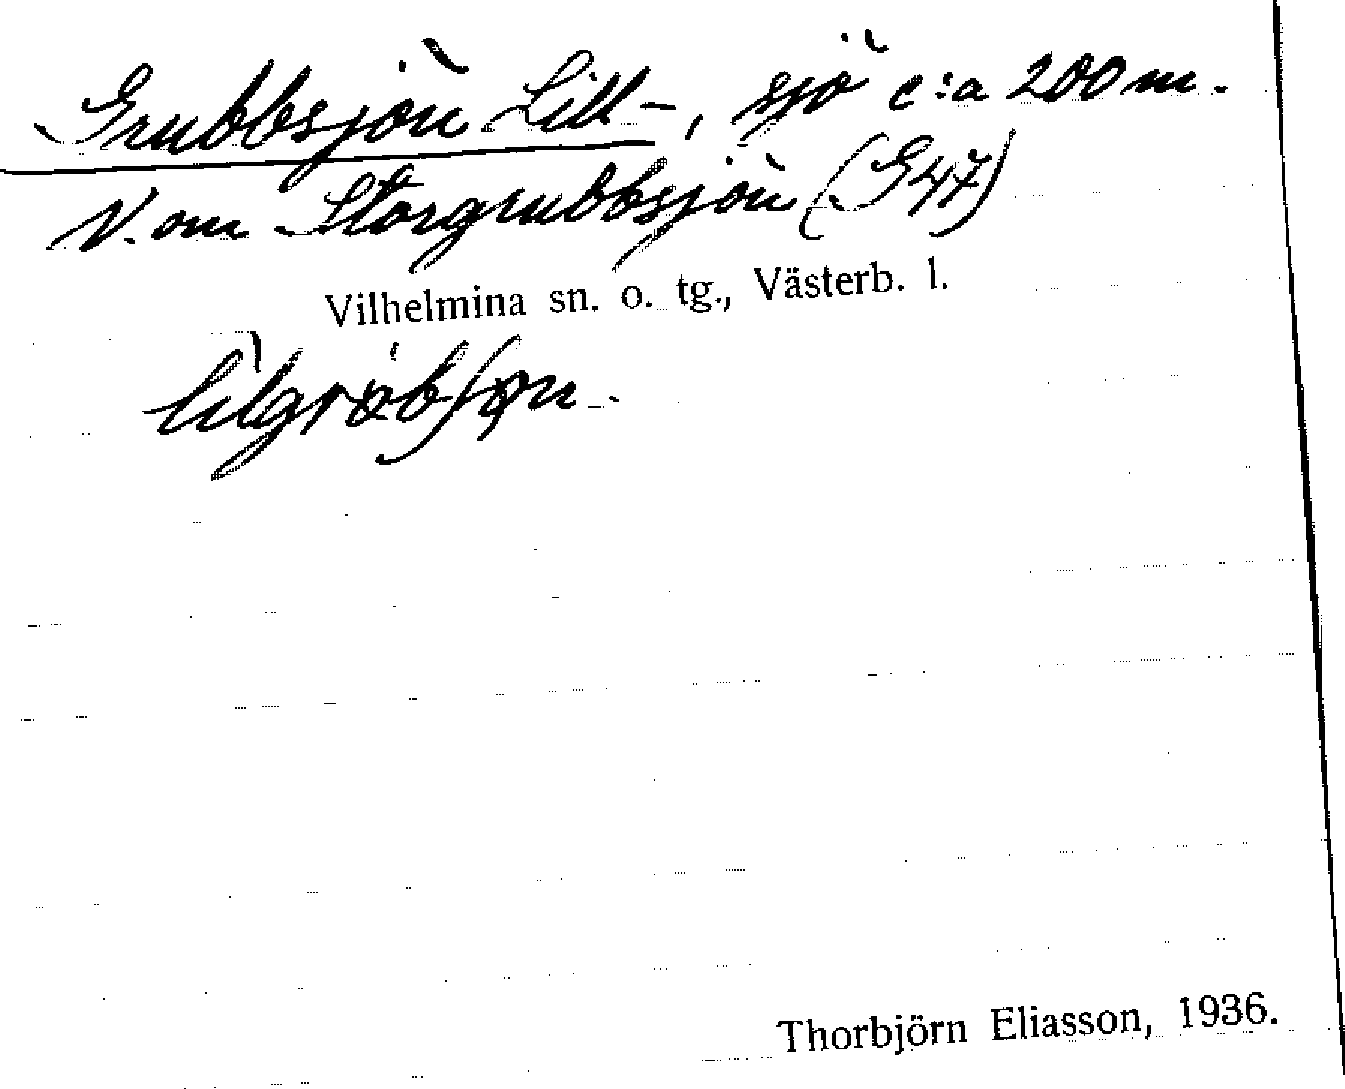 Grubbsjön Lill-, sjö c:a 200 m.
V. om Storgrubbsjön (G47)
Vilhelmina sn. o. tg., Västerb. l.
Thorbjörn Eliasson, 1936.